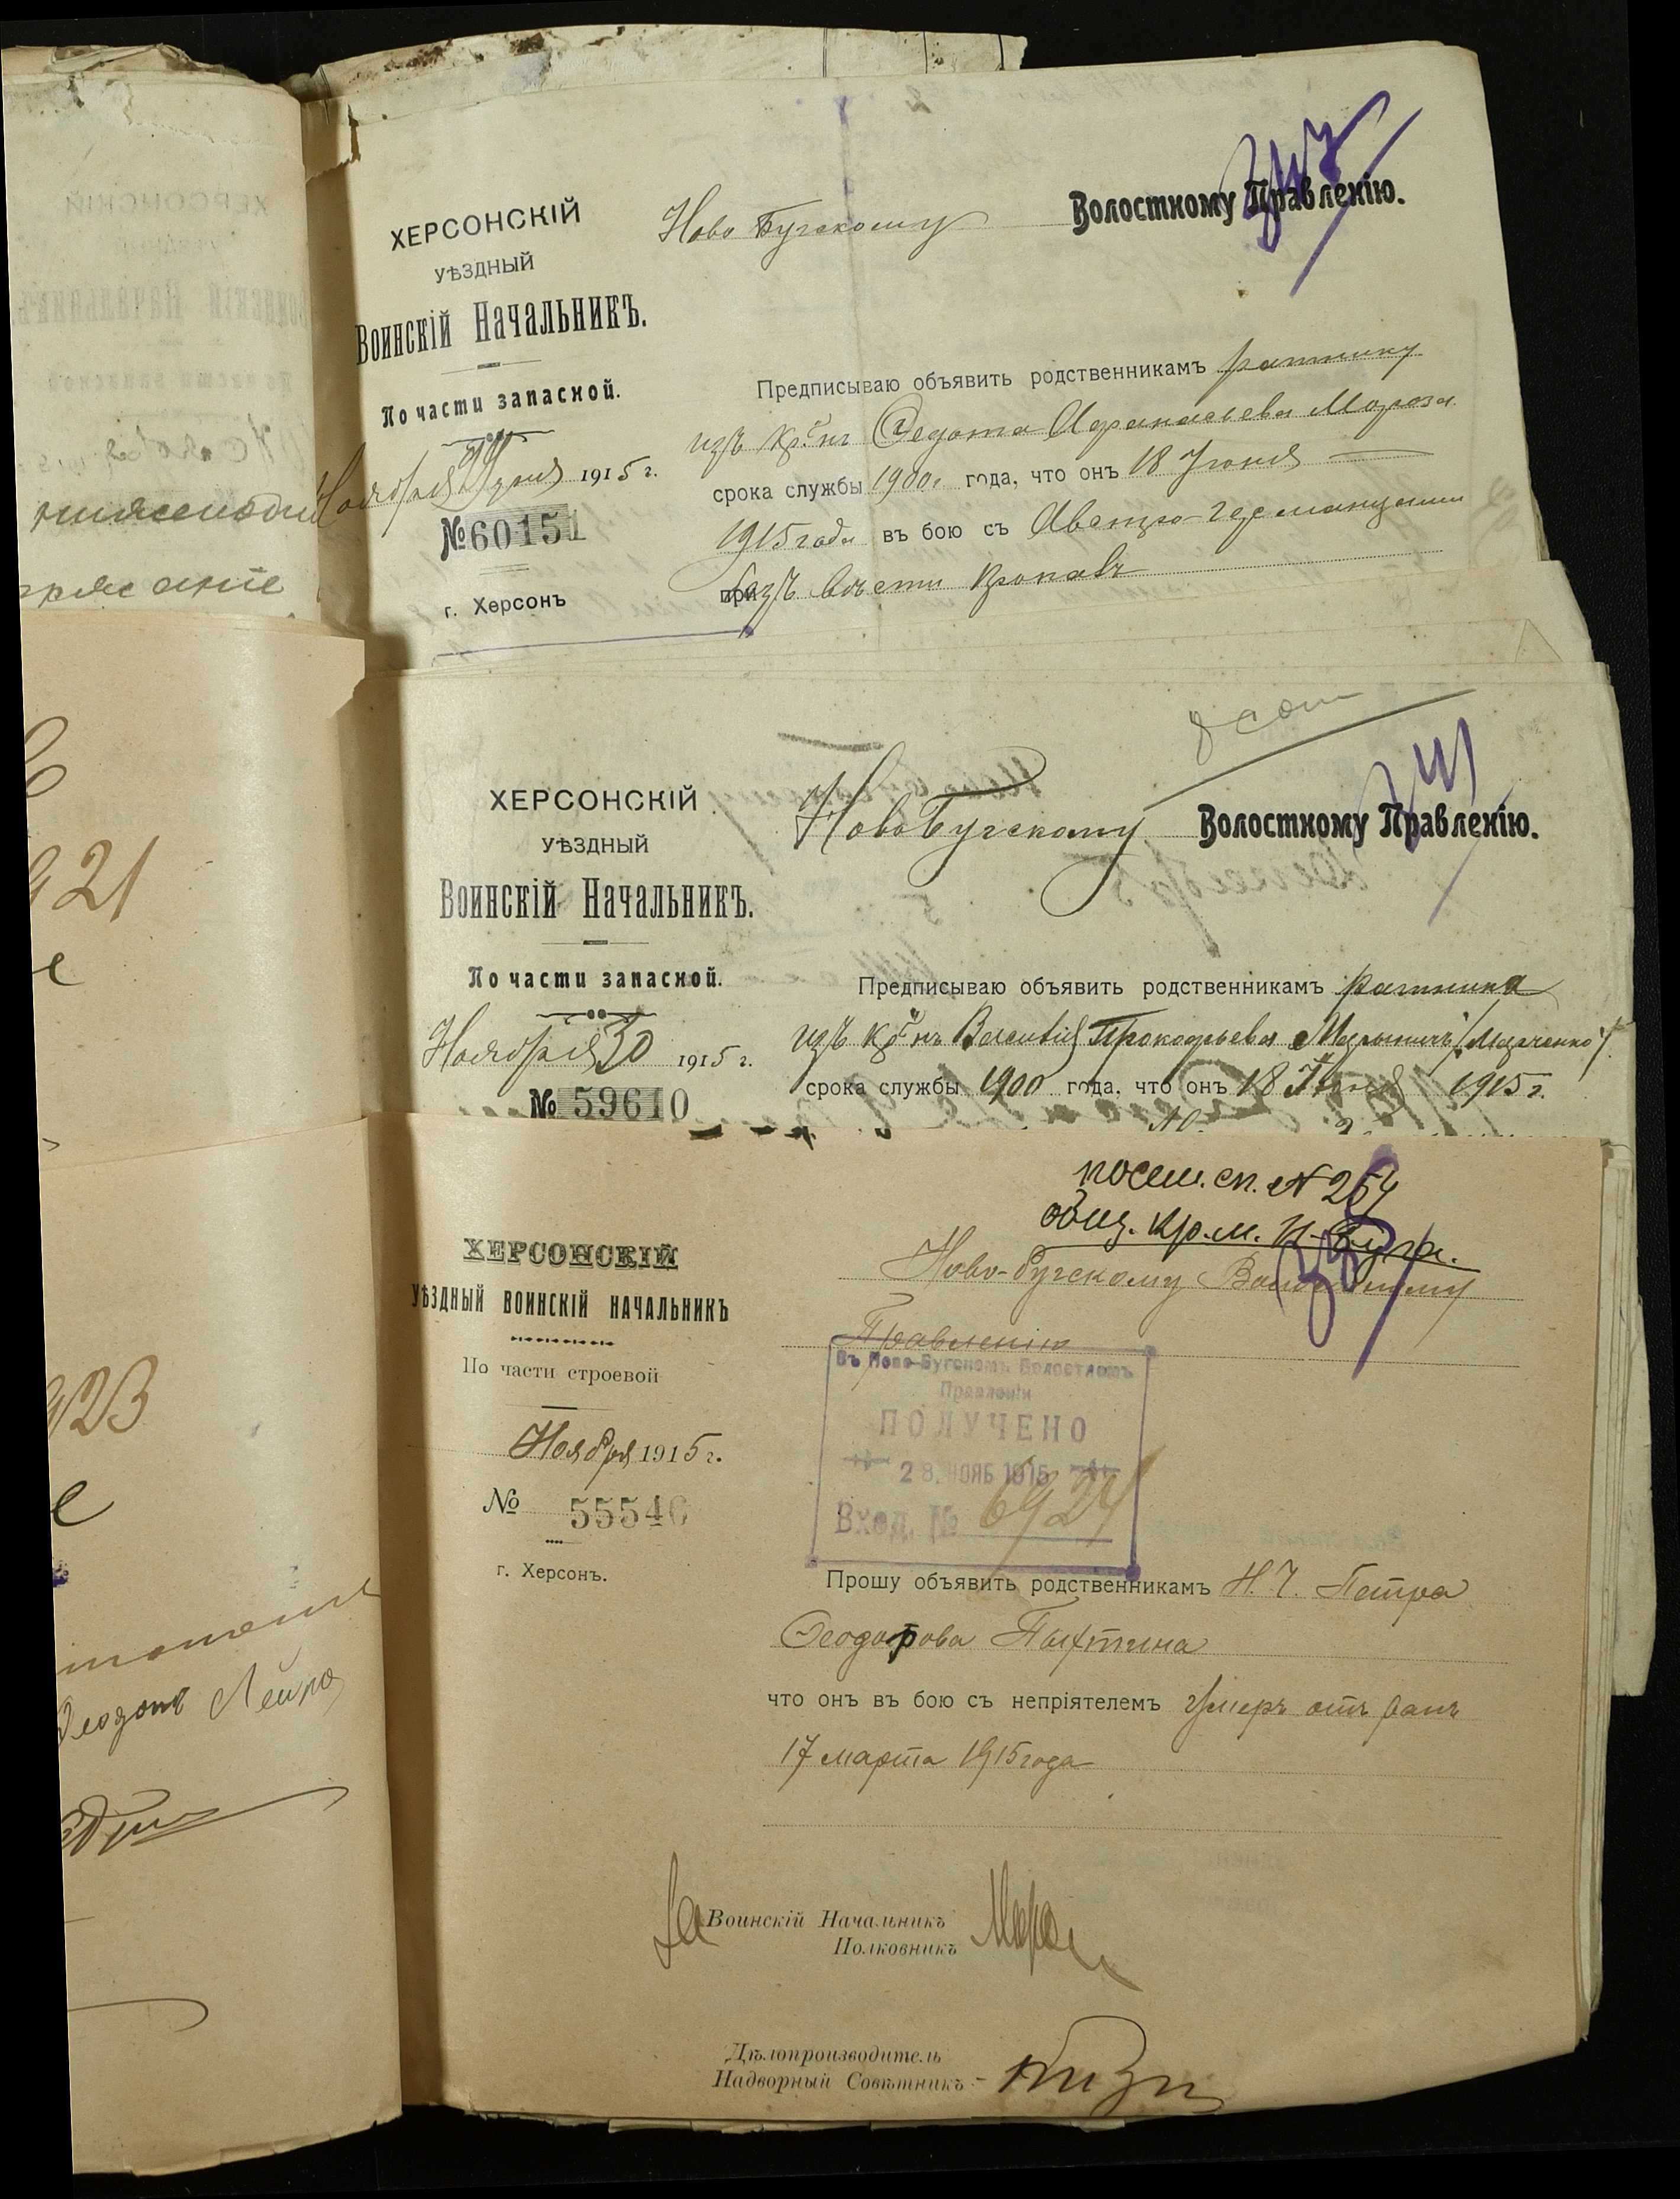 ХЕРСОНСКІЙ
УѢЗДНЫЙ
ВОИНСКІЙ НАЧАЛЬНИКЪ.
По части запасной.
Ноября 1915 г.
№ 60151
г. Херсонъ
Ново Бугскому Волостному Правленію.
Предписываю объявить родственникамъ ратнику
изъ кр-нъ Федота Афанасьева Мороза
срока службы 1900 года, что онъ 18 Іюня
1915 года въ бою съ Австро-Германцами
безъ вѣсти пропавъ
ХЕРСОНСКІЙ
УѢЗДНЫЙ
ВОИНСКІЙ НАЧАЛЬНИКЪ.
По части запасной.
Ноября 30 1915 г.
№ 59610
Ново Бугскому Волостному Правленію.
Предписываю объявить родственникамъ ратника
изъ кр-нъ Василія Прокофьева
срока службы 1900 года, что онъ 18 Іюня 1915 г.
посем. сп. № 254
общ. кр. м. Н-Буга.
ХЕРСОНСКІЙ
УѢЗДНЫЙ ВОИНСКІЙ НАЧАЛЬНИКЪ
По части строевой
Ноября 1915 г.
№ 55540
г. Херсонъ.
Ново-бугскому Волостному
Правленію
Въ Ново-Бугскомъ Волостномъ
Правленіи
ПОЛУЧЕНО
28 НОЯБ 1915
Вход. № 6924
Прошу объявить родственникамъ Н. Ч. Петра
Феодорова Пыхтина
что онъ въ бою съ непріятелемъ умеръ отъ ранъ
17 марта 1915 года
За Воинскій Начальникъ
Полковникъ
Дѣлопроизводитель
Надворный Совѣтникъ
921
923